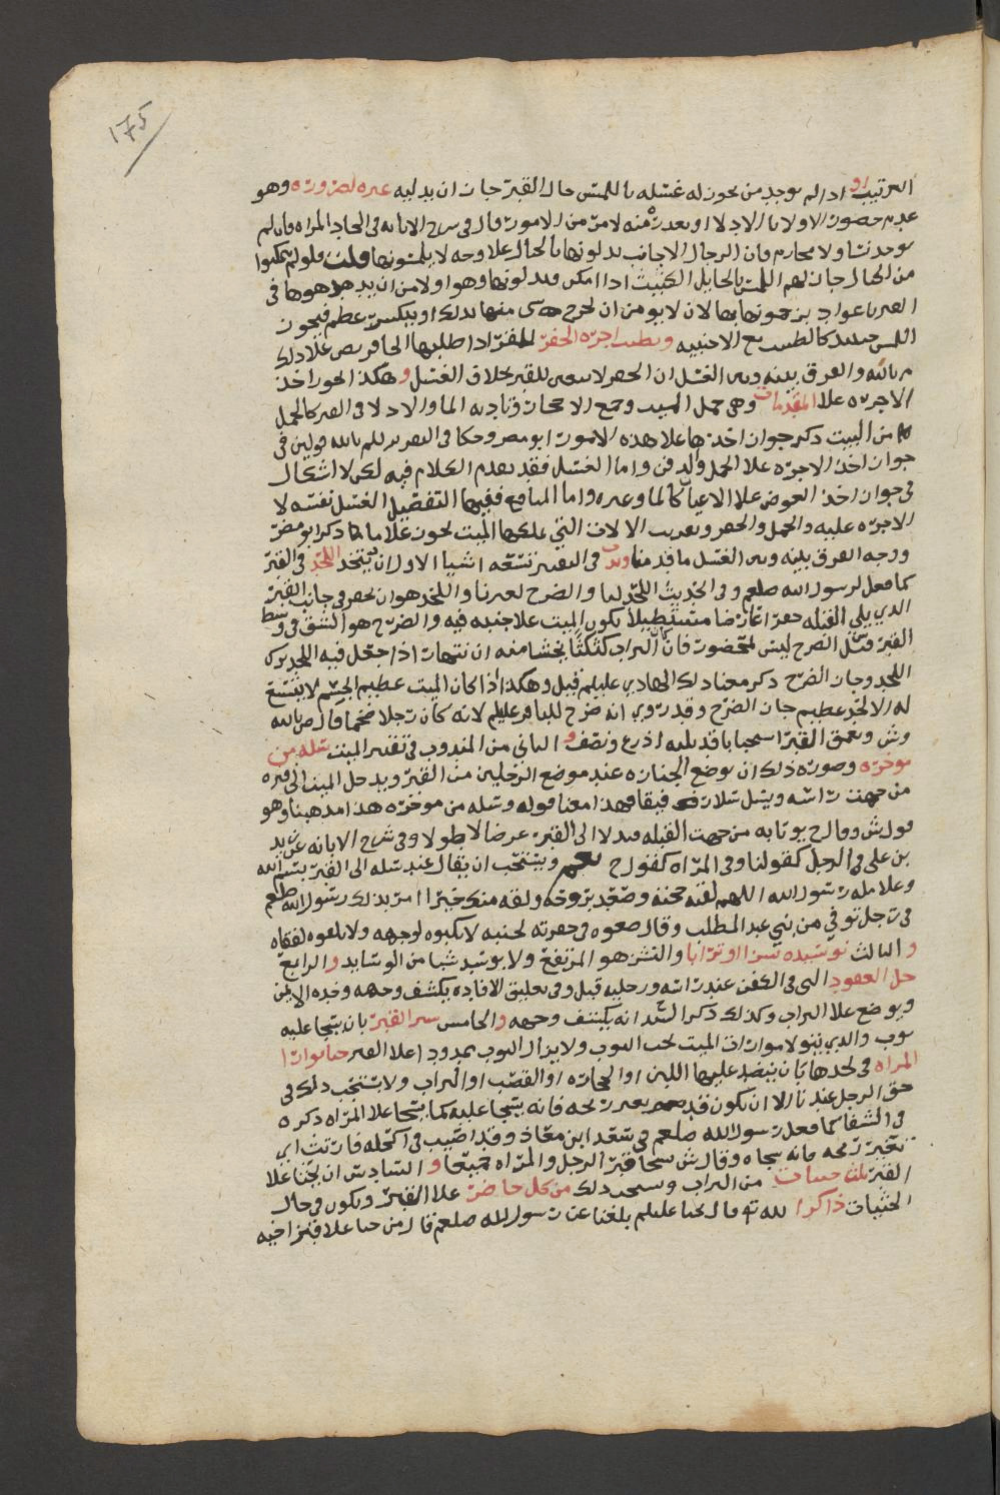 ١٧٥
الترتيب او اذا لم يوجد من يجوز له غسله باللمس حال القبر جاز ان يدليه غيره لضروره وهو
عدم حضور الاولا بالادلا او بعده منه لامر من الامور قال في شرح الابانه في الحاد المراه فان لم
يوجد نسا ولا محارم فان الرجال الاجانب يدلونها بالحايل علا وجه لا يلمسونها قلت فلو لم يتمكنوا
من الحايل جاز لهم اللمس بالحايل الكثيف اذا امكن ويدلونها وهو اولا من ان
القبر باعواد لان لا يومن ان يخرج شي منها بذلك او ينكسر عظم فيجوز
اللمس حينئذ كالطبيب مع الاجنبيه وتطيب اجره الحفر للمقبر اذا طلبها الحافر نص علا ذلك
م بالله والفرق بينه وبين الغسل ان الحفر لا يتعين للقبر بخلاف الغسل وهكذا يجوز اخذ
الاجره علا المقدمات وهي حمل الميت وجمع الاحجار وتاديه الما والادلا في القبر كالحمل
من البيت ذكر جواز اخذها علا هذه الامور ابو مضر وحكا في التقرير للم بالله قولين في
جواز اخذ الاجره علا الحمل والدفن واما الغسل فقد تقدم الكلام فيه لكن لا اشكال
في جواز اخذ العوض علا الاعيان كالما وغيره واما المنافع ففيها التفصيل الغسل نفسه لا
الاجره عليه والحمل والحفر وتقريب الالات التي يملكها الميت يجوز علا ما ذكر ابو مضر
ووجه الفرق بينه وبين الغسل ما قدمنا وندب في التقبير تسعه اشيا الاول ان يتخذ اللحد في القبر
كما فعل لرسول الله صلعم وفي الحديث اللحد لنا والضرح لغيرنا واللحد هو ان يحفر في جانب القبر
الذي يلي القبله حفرا عارضا مستطيلا يكون الميت علا جنبه فيه والضرح هو الشق في وسط
القبر قيل الضرح ليس بمحضور فان كان التراب يخشا منه ان ينهار اذا جعل فيه اللحد ترك
اللحد وجاز الضرح ذكر معنا ذلك الهادي عليلم قيل وهكذا اذا كان الميت عظيم الجسم لا يتسع
له الا لحد عظيم جاز الضرح وقد روي انه ضرح للباقر عليلم لانه كان رجلا ضخما قال ص بالله
وش وتعمق القبر استحبابا قدر ثلثه اذرع ونصف و الثاني من المندوب في تقبير الميت سله من
موخره وصوره ذلك ان توضع الجنازه عند موضع الرجلين من القبر ويدخل الميت الى قبره
من جهت راسه ويسل سلا رفيقا فهذا معنا قوله وسله من موخره هذا مذهبنا وهو
قول ش وقال ح يوتا به من جهت القبله فيدلا الى القبر عرضا لا طولا وفي شرح الابانه عن زيد
بن علي في الرجل كقولنا وفي المراه كقول ح نعم ويستحب ان يقال عند سله الى القبر بسم الله
وعلا مله رسول الله اللهم لقنه حجته وصعد بروحه ولقه منك خيرا امر بذلك رسول الله صلعم
في رجل توفي من بني عبد المطلب وقال ضعوه في حفرته لجنبه لا تكبوه لوجهه ولا تلقوه لقفاه
و الثالث توسيده نشزا او ترابا والنشز هو المرتفع ولا يوسد شيا من الوسايد و الرابع
حل العقود التي في الكفن عند راسه ورجليه قيل وفي تعليق الافاده يكشف وجهه وخده الايمن
ويوضع علا التراب وكذلك ذكر انه يكشف وجهه و الخامس ستر القبر بان يسجا عليه
ثوب والذي يتولا موارات الميت تحت الثوب ولا يزال الثوب ممدود اعلا القبر حتا توارا
المراه في لحدها بان ينضد عليها اللبن او الحجاره او القصب او التراب ولا يستحب ذلك في
حق الرجل عندنا الا ان يكون قد تغير ريحه فانه يسجا عليه كما يسجا علا المراه ذكره
في الشفا كما فعل رسول الله صلعم في سعد ابن معاذ وقد اصيب في اكحله فارتث اي
تغير ريحه فانه سجاه وقال ش يسجا قبر الرجل والمراه جميعا و السادس ان يحثا علا
القبر ثلث حثيات من التراب ويستحب ذلك من كل حاضر علا القبر ويكون في حال
الحثيات ذاكرا لله تع قال يحيا عليلم بلغنا عن رسول الله صلعم قال من حثا علا قبر اخيه